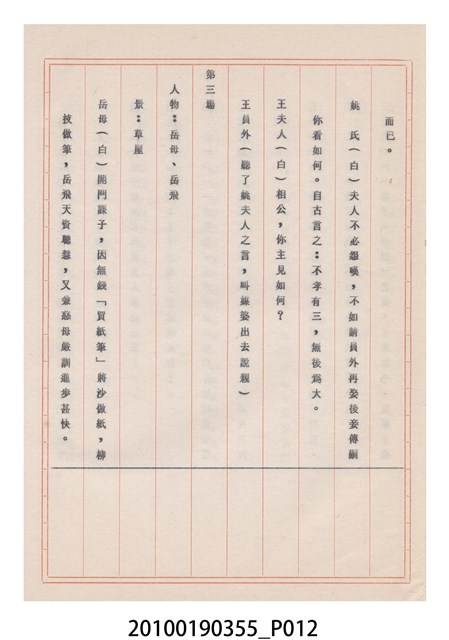 而已。
姚　氏(白)夫人不必怨嘆,不如請員外再娶後妾傳嗣
你看如何。自古言之:不孝有三,無後為大。
王夫人(白)相公,你主見如何?
王員外(聽了姚夫人之言,叫媒婆出去說親)
第三場
人物:岳母、岳飛
景:草屋
岳母(白)開門課子,因無錢「買紙筆」將沙做紙,柳
枝做筆,岳飛天資聰慧,又兼慈母嚴訓進步甚快。
20100190355_P012